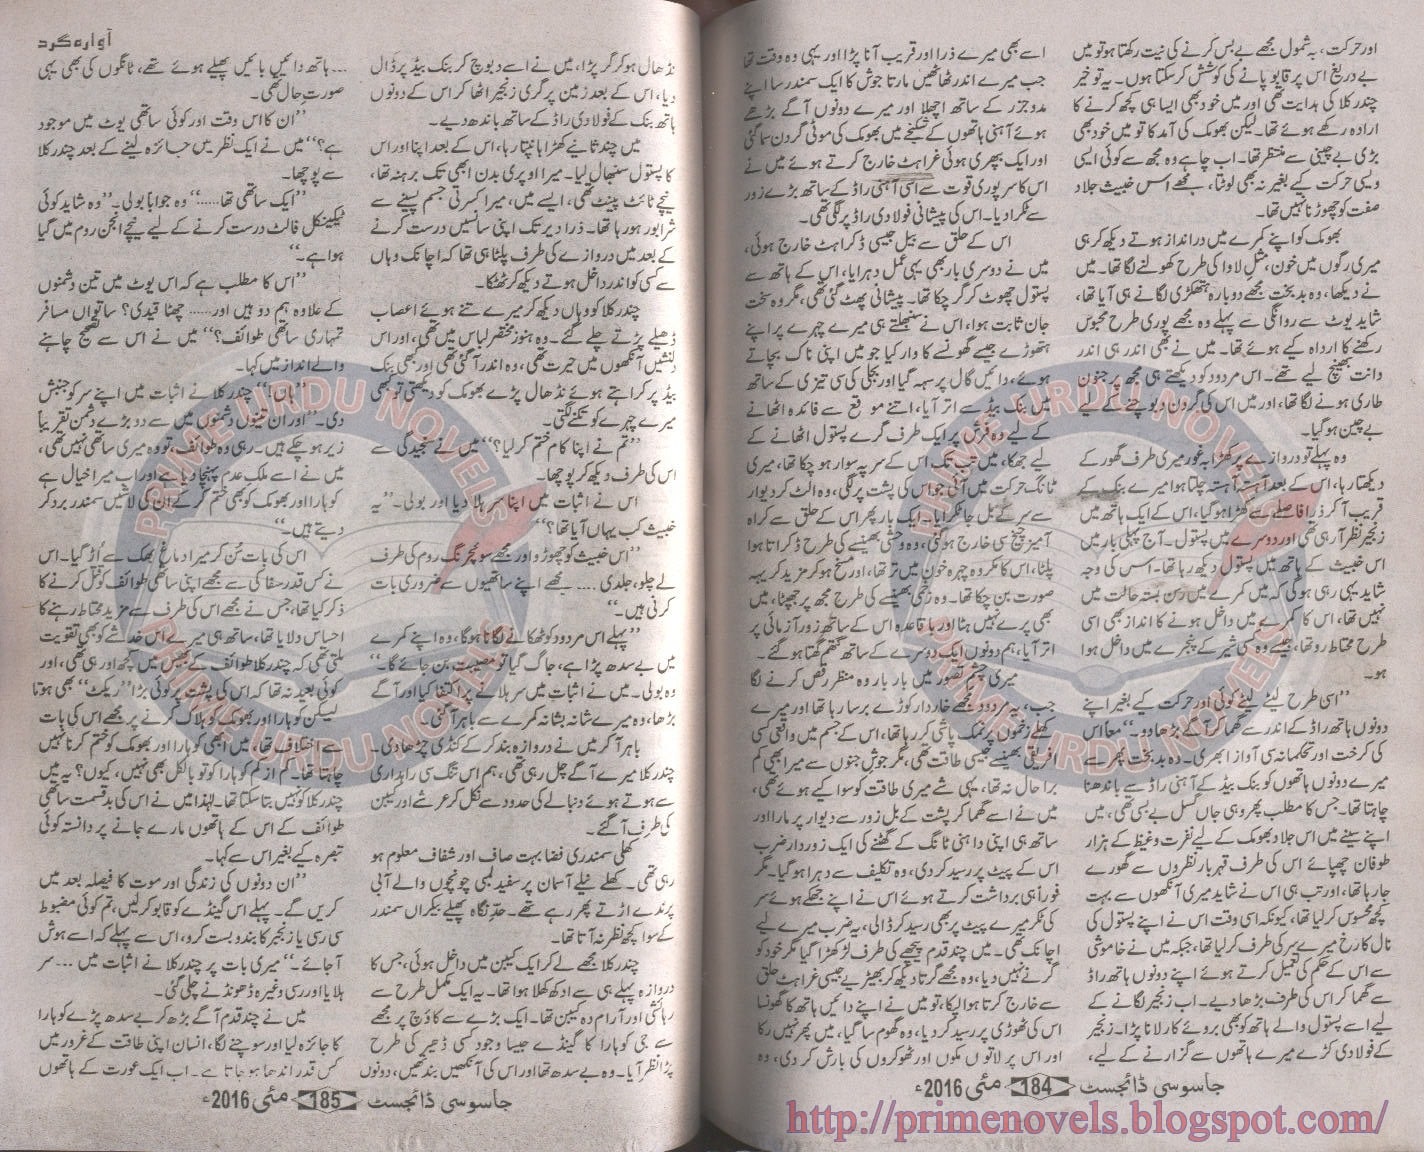 اور حرکت، بہ شمول مجھے بے بس کرنے کی نیت رکھتا ہو تو میں
بے دریغ اس پر قابو پانے کی کوشش کر سکتا ہوں۔ یہ تو خیر
چندر کلا کی ہدایت تھی اور میں خود بھی ایسا ہی کچھ کرنے کا
ارادہ رکھے ہوئے تھا۔ لیکن بھوک کی آمد کا تو میں خود بھی
بڑی بے چینی سے منتظر تھا۔ اب چاہے وہ مجھ سے کوئی ایسی
ویسی حرکت کیے بغیر نہ بھی لوٹتا، مجھے اس خبیث جلاد
صفت کو چھوڑنا نہیں تھا۔
بھوک کو اپنے کمرے میں در انداز ہوتے دیکھ کر ہی
میری رگوں میں خون، مثل لاوا کی طرح کھولنے لگا تھا۔ میں
نے دیکھا، وہ بدبخت مجھے دوبارہ ہتھکڑی لگانے ہی آیا تھا،
شاید یوٹ سے روانگی سے پہلے وہ مجھے پوری طرح محبوس
رکھنے کا ارادہ کیے ہوئے تھا۔ میں نے بھی اندر ہی اندر
دانت بھینچ لیے تھے۔ اس مردود کو دیکھتے ہی مجھ پر جنون
طاری ہونے لگا تھا، اور میں اس کی گردن دبوچنے کے لیے
بے چین ہو گیا۔
وہ پہلے تو دروازے پر کھڑا بہ غور میری طرف گھور کے
دیکھتا رہا، اس کے بعد آہستہ آہستہ چلتا ہوا میرے بنک کے
قریب آ کر ذرا فاصلے سے کھڑا ہو گیا، اس کے ایک ہاتھ میں
زنجیر نظر آ رہی تھی اور دوسرے میں پستول۔ آج پہلی بار میں
اس خبیث کے ہاتھ میں پستول دیکھ رہا تھا۔ اس کی وجہ
شاید یہی رہی ہوگی کہ میں کمرے میں رسن بستہ حالت میں
نہیں تھا، اس کا کمرے میں داخل ہونے کا انداز بھی اسی
طرح محتاط رو تھا، جیسے وہ کسی شیر کے پنجرے میں داخل ہوا
ہو۔
”اسی طرح لیٹے لیٹے کوئی اور حرکت کیے بغیر اپنے
دونوں ہاتھ راڈ کے اندر سے گھما کر آگے بڑھا دو۔“ معاً اس
کی کرخت اور تحکمانہ سی آواز ابھری۔ وہ بدبخت پھر سے
میرے دونوں ہاتھوں کو بنک بیڈ کے آہنی راڈ سے باندھنا
چاہتا تھا۔ جس کا مطلب پھر وہی جاں گسل بے بسی تھی، میں
اپنے سینے میں اس جلاد بھوک کے لیے نفرت و غیظ کے ہزار
طوفان چھپائے اس کی طرف قہربار نظروں سے گھورے
جا رہا تھا، اور تب ہی اس نے شاید میری آنکھوں سے بہت
کچھ محسوس کر لیا تھا، کیونکہ اسی وقت اس نے اپنے پستول کی
نال کا رخ میرے سر کی طرف کر لیا تھا، جبکہ میں نے خاموشی
سے اس کے حکم کی تعمیل کرتے ہوئے اپنے دونوں ہاتھ راڈ
سے گھما کر اس کی طرف بڑھا دیے۔ اب زنجیر لگانے کے
لیے اسے پستول والے ہاتھ کو بھی بروئے کار لانا پڑا۔ زنجیر
کے فولادی کڑے میرے ہاتھوں سے گزارنے کے لیے،
اسے بھی میرے ذرا اور قریب آنا پڑا اور یہی وہ وقت تھا
جب میرے اندر ٹھاٹھیں مارتا جوش کا ایک سمندر سا اپنے
مدوجزر کے ساتھ اچھلا اور میرے دونوں آگے بڑھے
ہوئے آہنی ہاتھوں کے شکنجے میں بھوک کی موٹی گردن سما گئی
اور ایک بپھری ہوئی غراہٹ خارج کرتے ہوئے میں نے
اس کا سر پوری قوت سے اسی آہنی راڈ کے ساتھ بڑے زور
سے ٹکرا دیا۔ اس کی پیشانی فولادی راڈ پر لگی تھی۔
اس کے حلق سے بیل جیسی ڈکراہٹ خارج ہوئی،
میں نے دوسری بار بھی یہی عمل دہرایا، اس کے ہاتھ سے
پستول چھوٹ کر گر چکا تھا۔ پیشانی پھٹ گئی تھی، مگر وہ سخت
جان ثابت ہوا، اس نے سنبھلتے ہی میرے چہرے پر اپنے
ہتھوڑے جیسے گھونسے کا وار کیا جو میں اپنی ناک بچاتے
ہوئے، دائیں گال پر سہہ گیا اور بجلی کی سی تیزی کے ساتھ
میں بنک بیڈ سے اتر آیا، اتنے موقع سے فائدہ اٹھانے
کے لیے وہ فرش پر ایک طرف گرے پستول اٹھانے کے
لیے جھکا، میں تب تک اس کے سر پہ سوار ہو چکا تھا، میری
ٹانگ حرکت میں آئی جو اس کی پشت پر لگی، وہ الٹ کر دیوار
سے سر کے بل جا ٹکرایا۔ ایک بار پھر اس کے حلق سے کراہ
آمیز چیخ سی خارج ہو گئی، وہ وحشی بھینسے کی طرح ڈکراتا ہوا
پلٹا، اس کا مکروہ چہرہ خون میں تر تھا، اور مسخ ہو کر مزید کریہہ
صورت بن چکا تھا۔ وہ زخمی بھینسے کی طرح مجھ پر جھپٹا، میں
بھی پرے نہیں ہٹا اور باقاعدہ اس کے ساتھ زور آزمائی پر
اتر آیا، ہم دونوں ایک دوسرے کے ساتھ گتھم گتھا ہو گئے۔
میری چشم تصور میں بار بار وہ منظر رقص کرنے لگا
جب، یہ مردود مجھے خاردار کوڑے برسا رہا تھا اور میرے
کھلے زخموں پر نمک پاشی کر رہا تھا، اس کے جسم میں واقعی کسی
افریقی بھینسے جیسی طاقت تھی، مگر جوش جنوں سے میرا بھی کم
برا حال نہ تھا، یہی شے میری طاقت کو سوا کیے ہوئے تھی،
میں نے اسے گھما کر پشت کے بل زور سے دیوار پر مارا اور
ساتھ ہی اپنی داہنی ٹانگ کے گھٹنے کی ایک زوردار ضرب
اس کے پیٹ پر رسید کر دی، وہ تکلیف سے دہرا ہو گیا۔ مگر
فوراً ہی برداشت کرتے ہوئے اس نے اپنے جھکے ہوئے سر
کی ٹکر میرے پیٹ پر بھی رسید کر ڈالی، یہ ضرب میرے لیے
اچانک تھی۔ میں چند قدم پیچھے کی طرف لڑکھڑا گیا مگر خود کو
گرنے نہیں دیا، وہ مجھے گرتا دیکھ کر بھیڑیے جیسی غراہٹ حلق
سے خارج کرتا ہوا لپکا، تو میں نے اپنے دائیں ہاتھ کا گھونسا
اس کی ٹھوڑی پر رسید کر دیا، وہ گھوم سا گیا، میں پھر نہیں رکا
اور اس پر لاتوں مکوں اور ٹھوکروں کی بارش کر دی، وہ
جاسوسی ڈائجسٹ 184 مئی 2016ء
آوارہ گرد
نڈھال ہو کر گر پڑا، میں نے اسے دبوچ کر بنک بیڈ پر ڈال
دیا، اس کے بعد زمین پر گری زنجیر اٹھا کر اس کے دونوں
ہاتھ بنک کے فولادی راڈ کے ساتھ باندھ دیے۔
میں چند ثانیے کھڑا ہانپتا رہا، اس کے بعد اپنا اور اس
کا پستول سنبھال لیا۔ میرا اوپری بدن ابھی تک برہنہ تھا،
نیچے ٹائٹ پینٹ تھی، ایسے میں، میرا کسرتی جسم پسینے سے
شرابور ہو رہا تھا۔ ذرا دیر تک اپنی سانسیں درست کرنے
کے بعد میں دروازے کی طرف پلٹا ہی تھا کہ اچانک وہاں
سے کسی کو اندر داخل ہوتے دیکھ کر ٹھٹکا۔
چندر کلا کو وہاں دیکھ کر میرے تنے ہوئے اعصاب
ڈھیلے پڑتے چلے گئے۔ وہ ہنوز مختصر لباس میں تھی، اور اس
دلنشیں آنکھوں میں حیرت تھی، وہ اندر آ گئی تھی اور کبھی بنک
بیڈ پر کراہتے ہوئے نڈھال پڑے بھوک کو دیکھتی تو کبھی
میرے چہرے کو تکنے لگتی۔
”تم نے اپنا کام ختم کر لیا؟“ میں نے سنجیدگی سے
اس کی طرف دیکھ کر پوچھا۔
اس نے اثبات میں اپنا سر ہلا دیا اور بولی۔ ”یہ
خبیث کب یہاں آیا تھا؟“
”اس خبیث کو چھوڑو اور مجھے سوئچرنگ روم کی طرف
لے چلو، جلدی .... مجھے اپنے ساتھیوں سے ضروری بات
کرنی ہیں۔“
”پہلے اس مردود کو ٹھکانے لگانا ہوگا، وہ اپنے کمرے
میں بے سدھ پڑا ہے، جاگ گیا تو مصیبت بن جائے گا۔“
وہ بولی۔ میں نے اثبات میں سر ہلانے پر اکتفا کیا اور آگے
بڑھا، وہ میرے شانہ بشانہ کمرے سے باہر آ گئی۔
باہر آ کر میں نے دروازہ بند کر کے کنڈی چڑھا دی۔
چندر کلا میرے آگے چل رہی تھی، ہم اس تنگ سی راہداری
سے ہوتے ہوئے دنبالے کی حدود سے نکل کر عرشے اور کیبن
کی طرف آ گئے۔
کھلی سمندری فضا بہت صاف اور شفاف معلوم ہو
رہی تھی۔ کھلے نیلے آسمان پر سفید لمبی چونچوں والے آبی
پرندے اڑتے پھر رہے تھے۔ حد نگاہ پھیلے بیکراں سمندر
کے سوا کچھ نظر نہ آتا تھا۔
چندر کلا مجھے لے کر ایک کیبن میں داخل ہوئی، جس کا
دروازہ پہلے ہی سے ادھ کھلا ہوا تھا۔ یہ ایک مکمل طرح سے
رہائشی اور آرام دہ کیبن تھا۔ ایک بڑے سے کاؤچ پر مجھے
سے جی کوہارا کا گینڈے جیسا وجود کسی ڈھیر کی طرح
پڑا نظر آیا۔ وہ بے سدھ تھا اور اس کی آنکھیں بند تھیں، دونوں
... ہاتھ دائیں بائیں پھیلے ہوئے تھے، ٹانگوں کی بھی یہی
صورت حال تھی۔
”ان کا اس وقت اور کوئی ساتھی یوٹ میں موجود
ہے؟“ میں نے ایک نظر یہیں جائزہ لینے کے بعد چندر کلا
سے پوچھا۔
”ایک ساتھی تھا......“ وہ جواباً بولی۔ ”وہ شاید کوئی
ٹیکنیکل فالٹ درست کرنے کے لیے نیچے انجن روم میں گیا
ہوا ہے۔“
”اس کا مطلب ہے کہ اس یوٹ میں تین دشمنوں
کے علاوہ ہم دو ہیں اور...... چھٹا قیدی؟ ساتواں مسافر
تمہاری ساتھی طوائف؟“ میں نے اس سے تصحیح چاہنے
والے انداز میں کہا۔
”ہاں!“ چندر کلا نے اثبات میں اپنے سر کو جنبش
دی۔ ”اور ان تینوں دشمنوں میں سے دو بڑے دشمن تقریباً
زیر ہو چکے ہیں۔ رہی وہ طوائف، تو وہ میری ساتھی نہیں تھی،
میں نے اسے ملک عدم پہنچا دیا ہے اور اب میرا خیال ہے
کوہارا اور بھوک کو بھی ختم کر کے ان کی لاشیں سمندر برد کر
دیتے ہیں۔“
اس کی بات سن کر میرا دماغ بھک سے اُڑ گیا۔ اس
نے کس قدر سفاکی سے مجھے اپنی ساتھی طوائف کو قتل کرنے کا
ذکر کیا تھا، جس نے مجھے اس کی طرف سے مزید محتاط رہنے کا
احساس دلایا تھا، ساتھ ہی میرے اس خدشے کو بھی تقویت
ملتی تھی کہ چندر کلا طوائف کے بھیس میں کچھ اور ہی تھی، اور
کوئی بعید نہ تھا کہ اس کی پشت پر کوئی بڑا ”ریکٹ“ بھی ہوتا
لیکن کوہارا اور بھوک کو ہلاک کرنے پر مجھے اس کی بات
سے اختلاف تھا، میں ابھی کوہارا اور بھوک کو ختم کرنا نہیں
چاہتا تھا۔ کم از کم کوہارا کو تو بالکل بھی نہیں، کیوں؟ یہ میں
چندر کلا کو نہیں بتا سکتا تھا۔ لہٰذا میں نے اس کی بدقسمت ساتھی
طوائف کے اس کے ہاتھوں مارے جانے پر دانستہ کوئی
تبصرہ کیے بغیر اس سے کہا۔
”ان دونوں کی زندگی اور موت کا فیصلہ بعد میں
کریں گے۔ پہلے اس گینڈے کو قابو کر لیں، تم کوئی مضبوط
سی رسی یا زنجیر کا بندوبست کرو، اس سے پہلے کہ اسے ہوش
آ جائے۔“ میری بات پر چندر کلا نے اثبات میں ... سر
ہلایا اور رسی وغیرہ ڈھونڈنے چلی گئی۔
میں نے چند قدم آگے بڑھ کر بے سدھ پڑے کوہارا
کا جائزہ لیا اور سوچنے لگا، انسان اپنی طاقت کے غرور میں
کس قدر اندھا ہو جاتا ہے۔ اب ایک عورت کے ہاتھوں
جاسوسی ڈائجسٹ 185 مئی 2016ء
PRIME URDU NOVELS
PRIME URDU NOVELS
PRIME URDU NOVELS
PRIME URDU NOVELS
http://primenovels.blogspot.com/